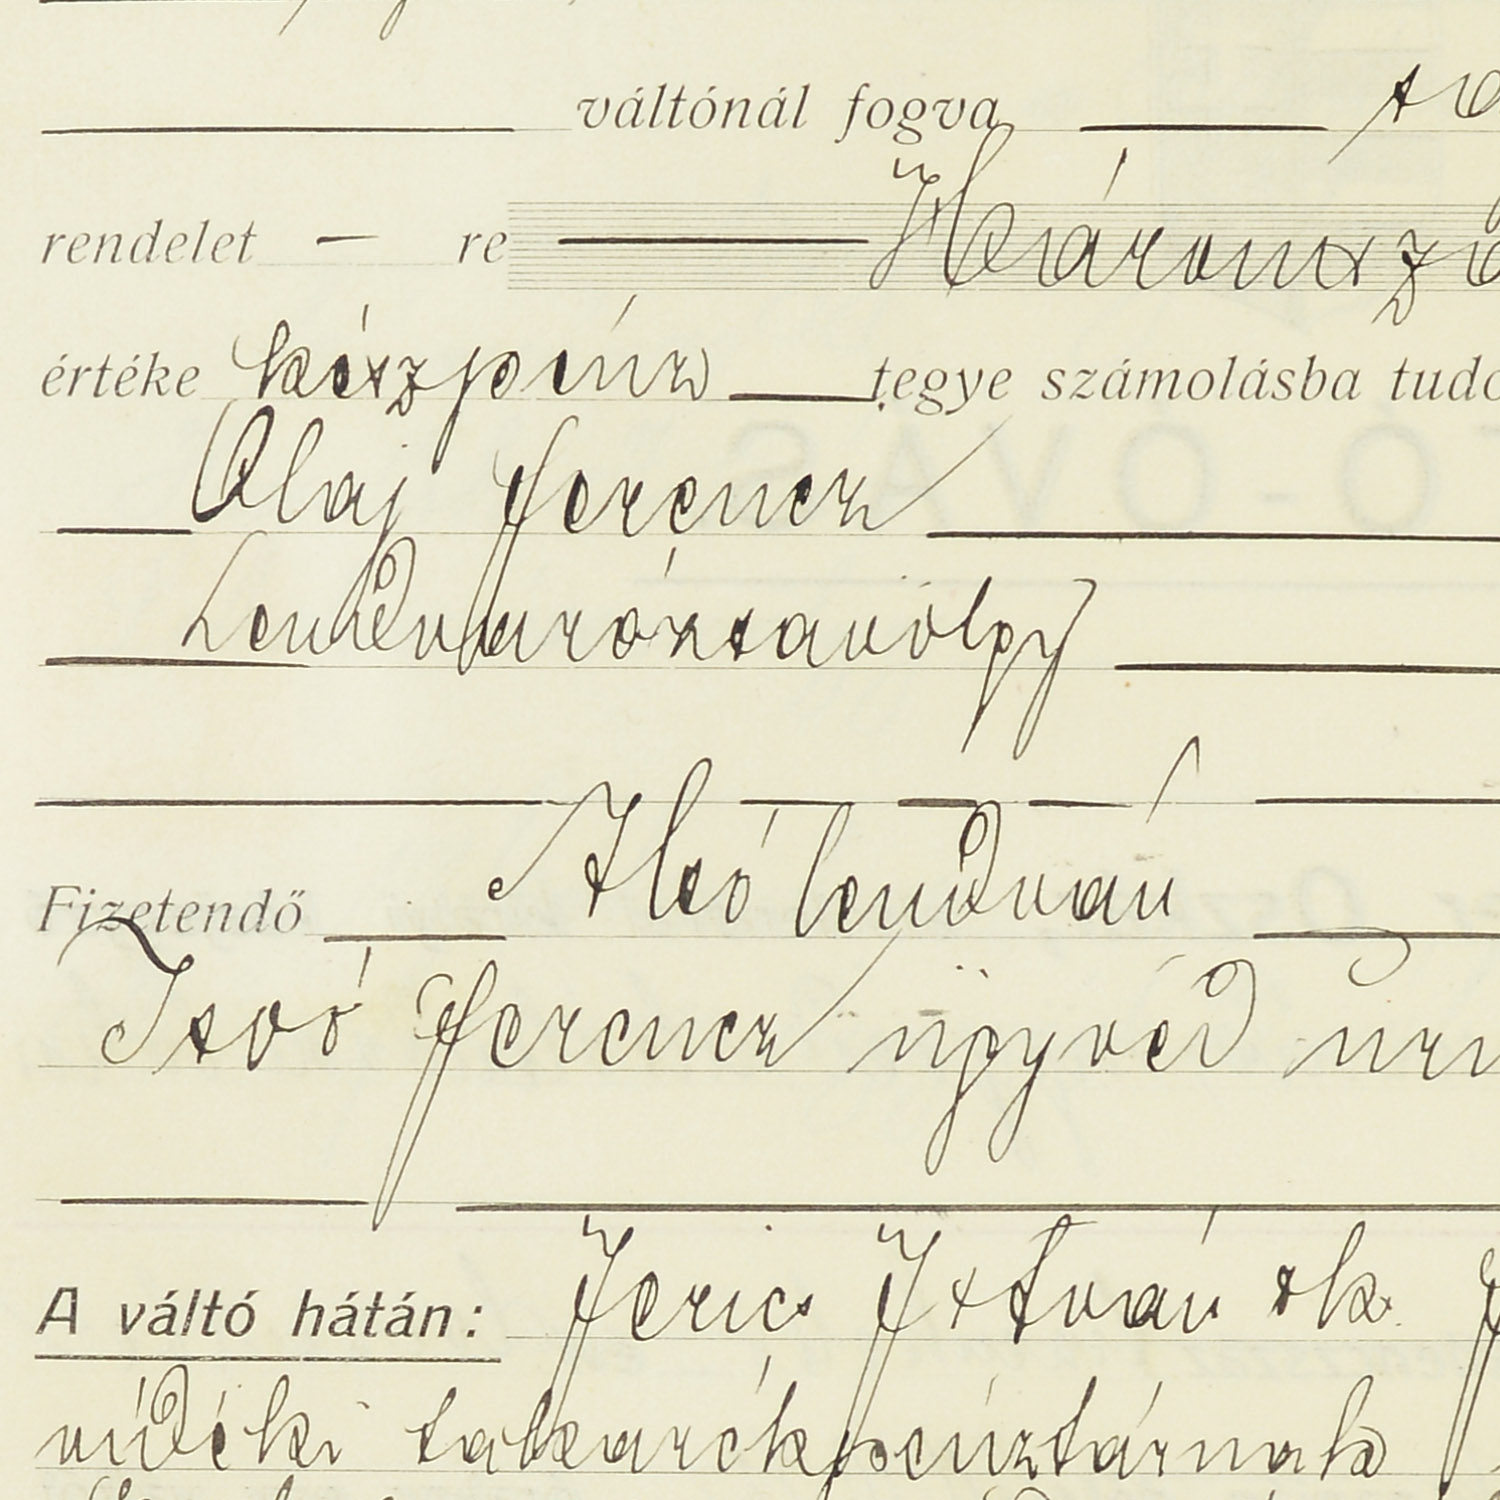 váltónál fogva
rendelet — re Háromsz
értéke készpénz tegye számolásba tudo
Olaj Ferencz
Lendvarózsavölgy
Fizetendő Alsólendván
Isoó Ferencz ügyvéd
A váltó hátán: Jerics István sk.
vidéki takarékpénztárnak